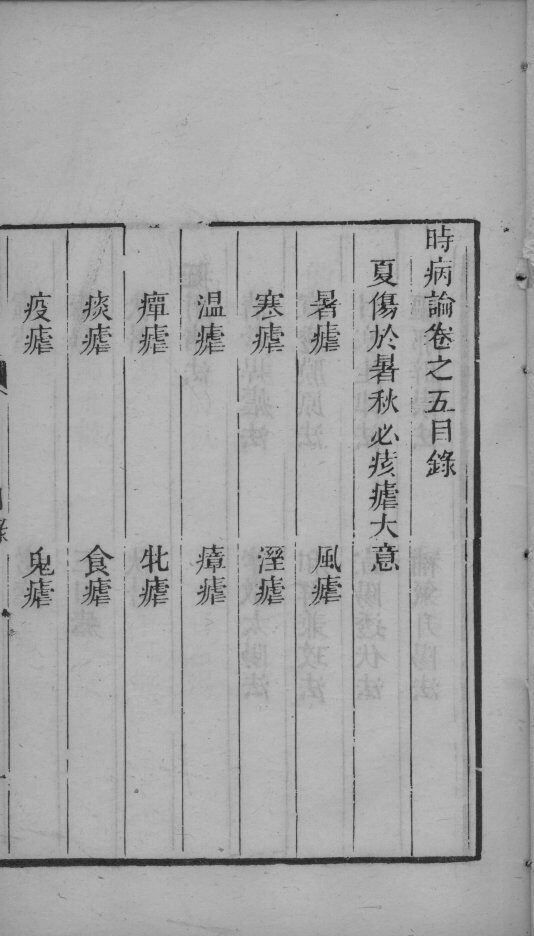 時病論卷之五目錄
夏傷於暑秋必痎瘧大意
暑瘧 風瘧
寒瘧 溼瘧
温瘧 瘴瘧
癉瘧 牝瘧
痰瘧 食瘧
疫瘧 鬼瘧